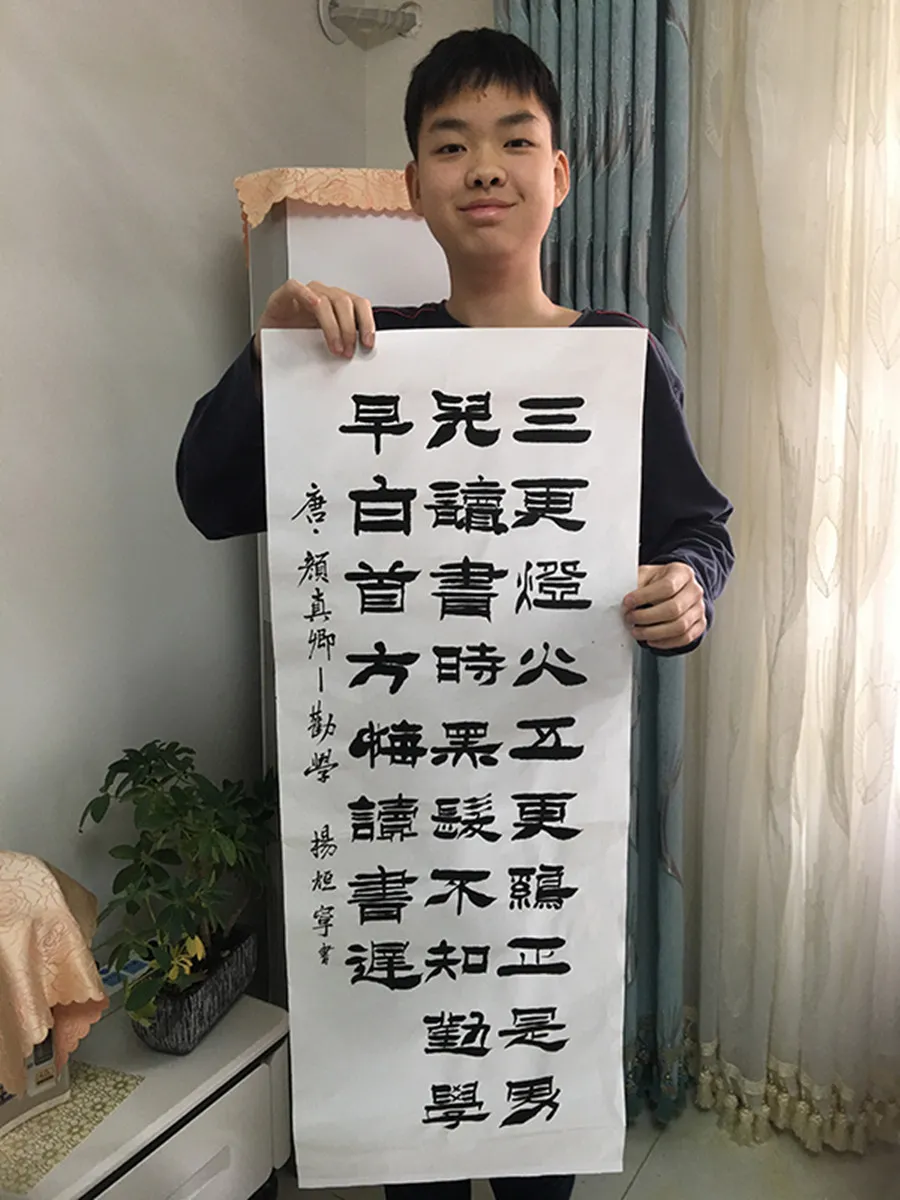 三更燈火五更鷄正是男
兒讀書時黑髮不知勤學
早白首方悔讀書遲
唐·顏真卿—勸學 楊烜寧書